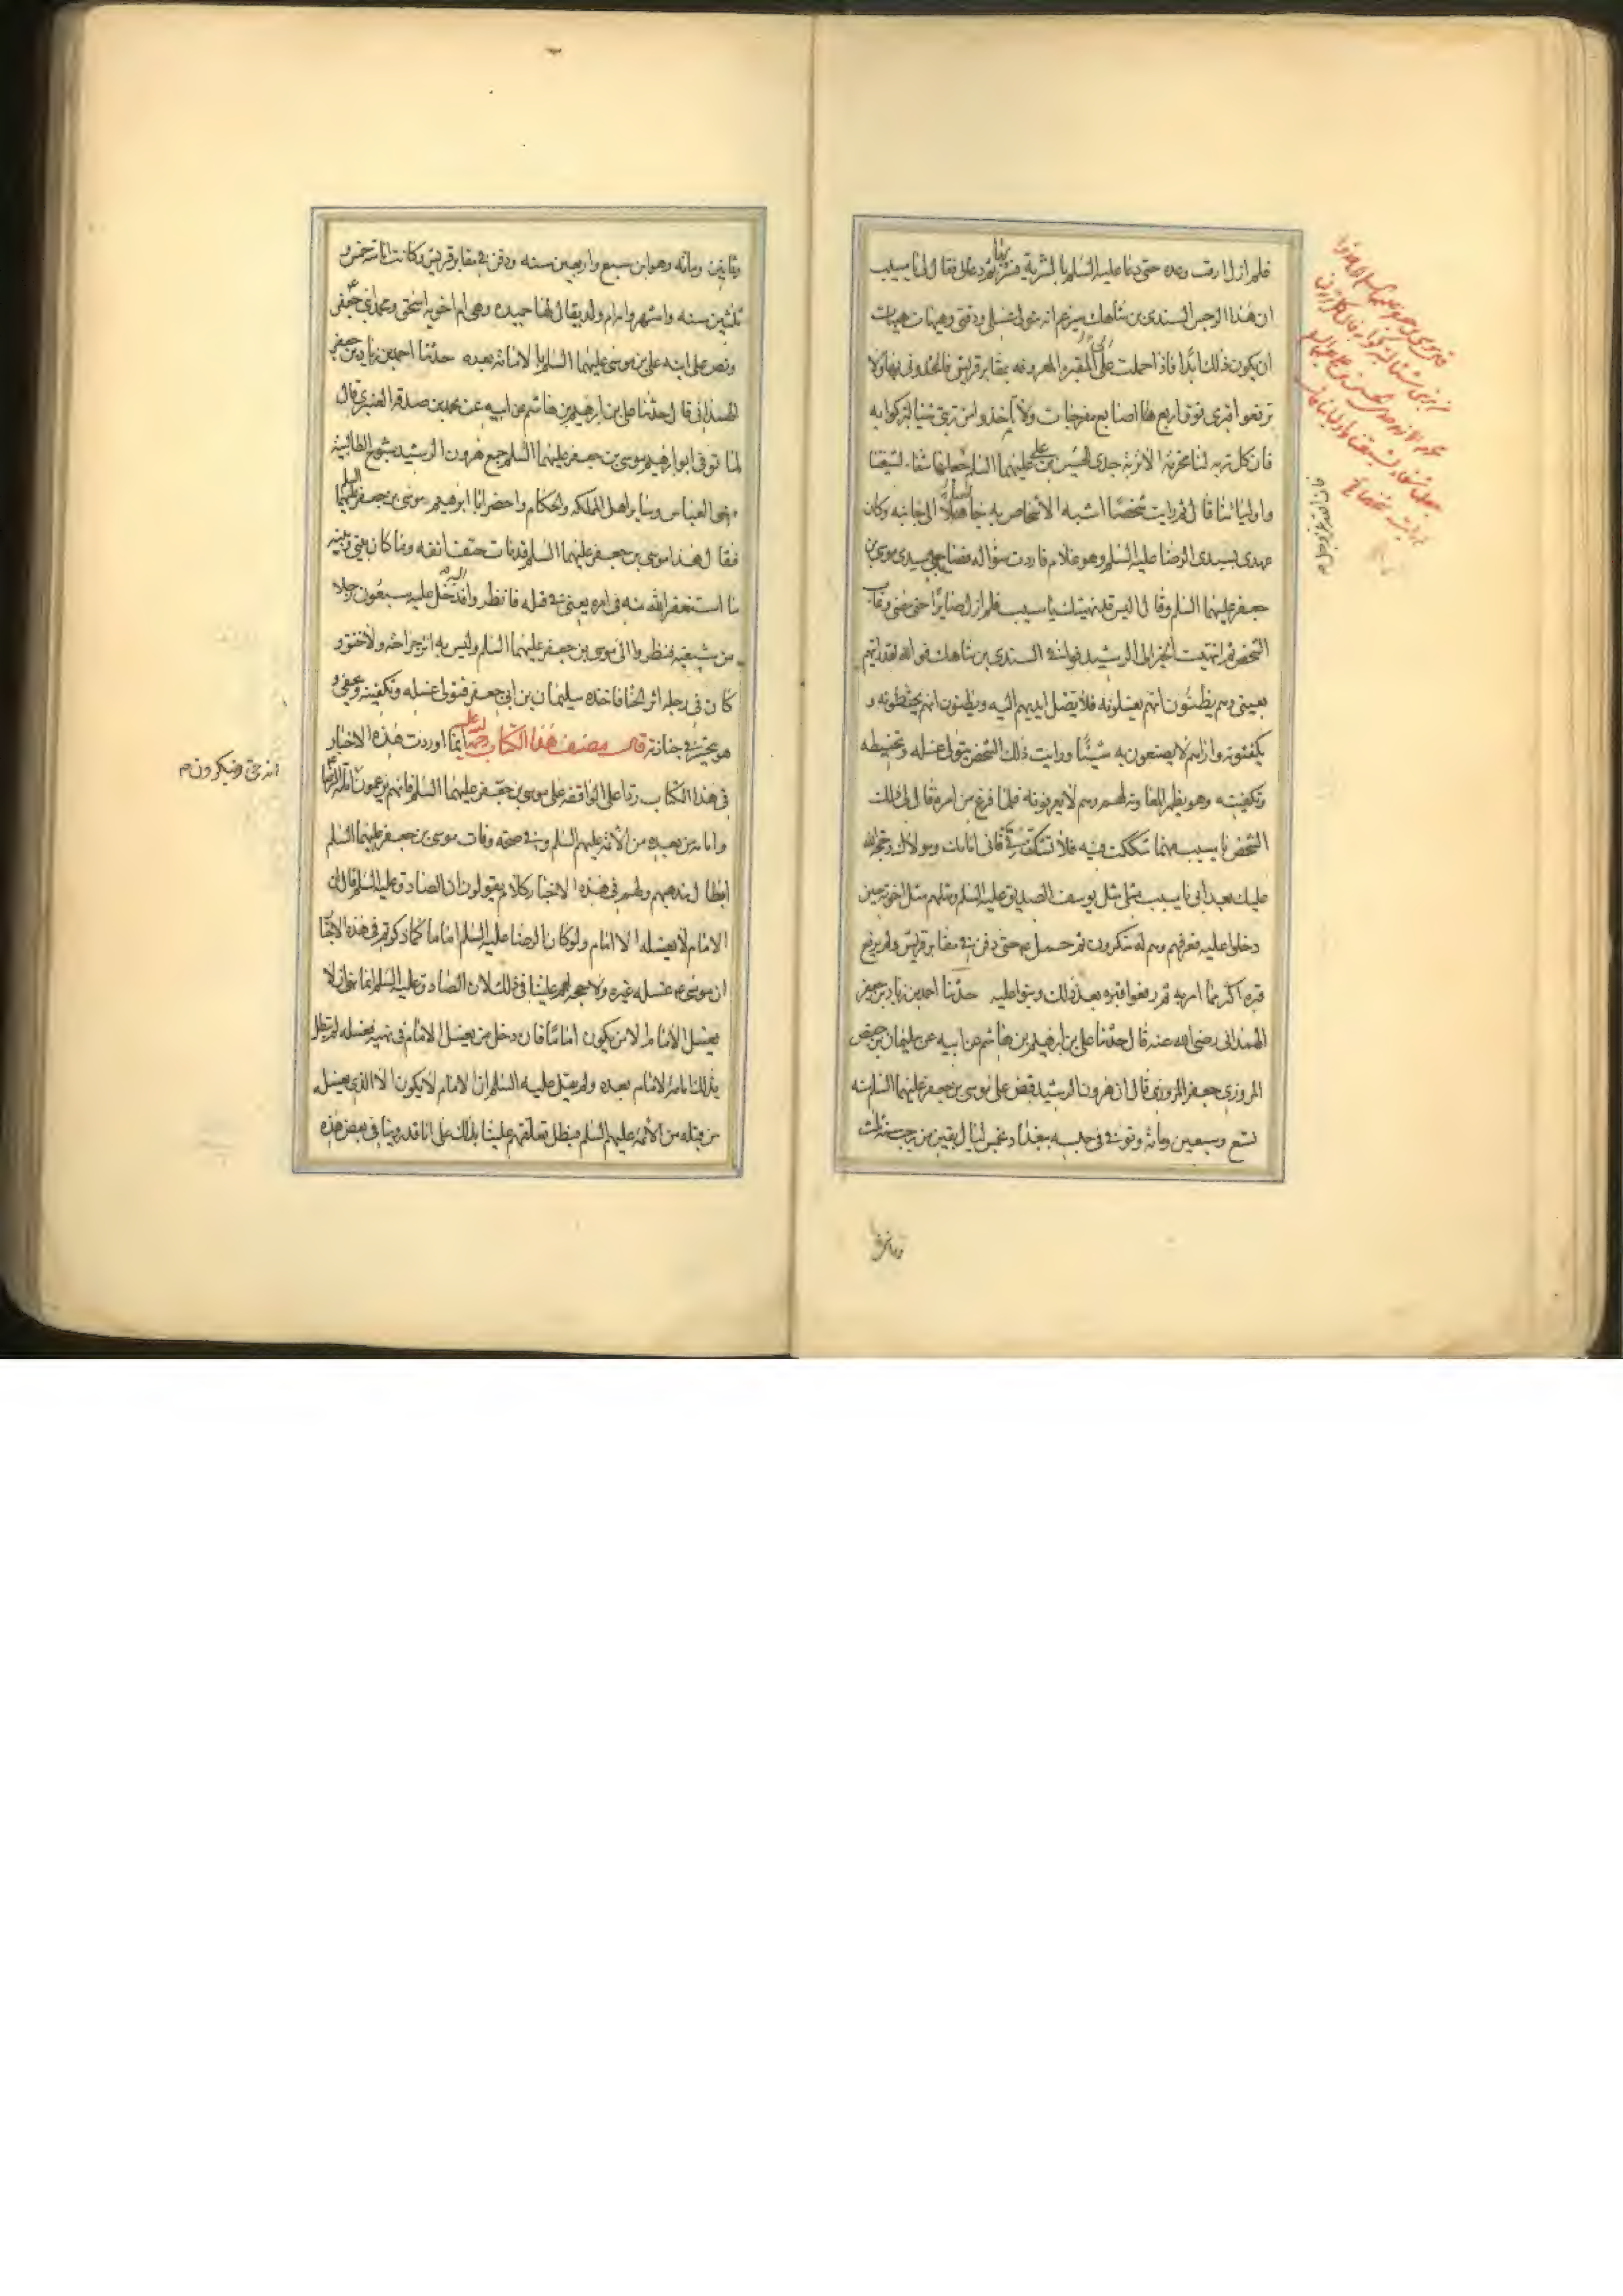 فلم ازل ارقب وعده حتى دعا عليه السلم بالشربة فشربها ثم دعانى فقال لى يا مسيب
ان هذا الرجس السندى بن شاهك سيزعم انه يتولى غسلى ودفنى وهيهات هيهات
ان يكون ذلك ابدا فاذا حملت الى المقبرة المعروفه بمقابر قريش فالحدونى بها ولا
ترفعوا قبرى فوق اربع اصابع مفرجات ولا تاخذوا من تربتى شيئا لتتبركوا به
فان كل تربه لنا محرمة الا تربة جدى الحسين بن على عليهما السلم جعلها شفاء لشيعتنا
واوليائنا قال ثم رايت شخصا اشبه الاشخاص به جالسا الى جانبه وكان
عهدى بسيدى الرضا عليه السلم وهو غلام فاردت سؤاله فصاح بى سيدى موسى بن
جعفر عليهما السلم وقال اليس قد نهيتك يا مسيب فلم ازل صابرا حتى مضى وغاب
الشخص ثم انهيت الخبر الى الرشيد فوافى السندى بن شاهك فوالله لقد رايتهم
بعينى وهم يظنون انهم يغسلونه فلا تصل ايديهم اليه ويظنون انهم يحنطونه و
يكفنونه واراهم لا يصنعون به شيئا ورايت ذلك الشخص يتولى غسله وتحنيطه
وتكفينه وهو يظهر المعاونه لهم وهم لا يعرفونه فلما فرغ من امره قال لى ذلك
الشخص يا مسيب مهما شككت فيه فلا تشكن فى فانى امامك ومولاك وحجة الله
عليك بعد ابى يا مسيب مثلى مثل يوسف الصديق عليه السلم ومثلهم مثل اخوته حين
دخلوا عليه فعرفهم وهم له منكرون ثم حمل ع حتى دفن فى مقابر قريش ولم يرفع
قبره اكثر مما امر به ثم رفعوا قبره بعد ذلك وبنوا عليه حدثنا احمد بن زياد بن جعفر
الهمدانى رضى الله عنه قال حدثنا على بن ابرهيم بن هاشم عن ابيه عن سليمان بن حفص
المروزى قال ان هرون الرشيد قبض على موسى بن جعفر عليهما السلم سنه
تسع وسبعين ومائة وتوفى فى حبسه ببغداد لخمس ليال بقين من رجب سنه ثلث
قال الله عز وجل م
وثمانين
وثمانين ومائه وهو ابن سبع واربعين سنه ودفن فى مقابر قريش وكانت امامته خمس و
ثلثين سنه واشهر وامه ام ولد يقال لها حميده وهى ام اخويه اسحق ومحمد ابنى جعفر
ونص على ابنه على بن موسى عليهما السلم بالامامة بعده حدثنا احمد بن زياد بن جعفر
الهمدانى قال حدثنا على بن ابرهيم بن هاشم عن ابيه عن محمد بن صدقه العنبرى قال
لما توفى ابو ابرهيم موسى بن جعفر عليهما السلم جمع هرون الرشيد شيوخ الطالبية
وبنى العباس وساير اهل المملكه والحكام واحضر ابا ابرهيم موسى بن جعفر عليهما السلم
فقال هذا موسى بن جعفر عليهما السلم قد مات حتف انفه وما كان بينى وبينه
ما استغفر الله منه فى امره يعنى فى قتله فانظروا اليه فدخل عليه سبعون رجلا
من شيعته فنظروا الى موسى بن جعفر عليهما السلم وليس به اثر جراحة ولا خنق و
كان فى رجله اثر الحنا فاخذه سليمان بن ابى جعفر فتولى غسله وتكفينه وتحفى و
هو يتحسر فى جنازته قال مصنف هذا الكتاب رحمه الله انما اوردت هذه الاخبار
فى هذا الكتاب ردا على الواقفه على موسى بن جعفر عليهما السلم فانهم يزعمون امامة الرضا
وامامة من بعده من الائمة عليهم السلم وفى صحة وفات موسى بن جعفر عليهما السلم
ابطال مذهبهم ولهم فى هذه الاخبار كلام يقولون ان الصادق عليه السلم قال ان
الامام لا يغسله الا امام ولو كان الرضا عليه السلم اماما كما ذكرتم فى هذه الاخبار
ان موسى ع غسله غيره ولا حجه لهم علينا فى ذلك لان الصادق عليه السلم انما نهى ان لا
يغسل الامام الا من يكون اماما فان دخل من يغسل الامام فى نهيه فغسله لم تبطل
بذلك امامة الامام بعده ولم يقل عليه السلم ان الامام لا يكون الا الذى يغسل
من قبله من الائمة عليهم السلم فبطل تعلقهم علينا بذلك على انا قد روينا فى بعض هذه
انه حى وينكرون م